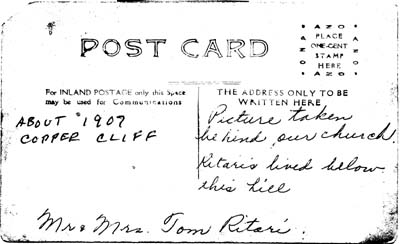 POST CARD
AZO
PLACE
ONE-CENT
STAMP
HERE
AZO
For INLAND POSTAGE only this Space
may be used for Communications
THE ADDRESS ONLY TO BE
WRITTEN HERE
ABOUT 1907
COPPER CLIFF
Picture taken
behind our church.
Ritaris lived below
this hill
Mr & Mrs. Tom Ritari.